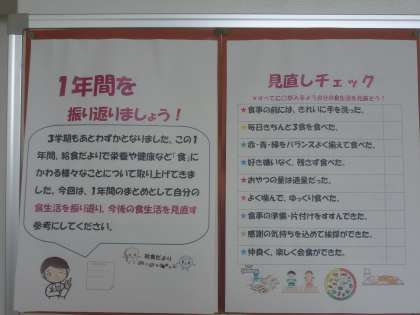 1年間を
振り返りましょう！
3学期もあとわずかとなりました。この1
年間、給食だよりで栄養や健康など「食」に
かかわる様々なことについて取り上げてきま
した。今回は、1年間のまとめとして自分の
食生活を振り返り、今後の食生活を見直す
参考にしてください。
給食だより
見直しチェック
★すべてに○が入るよう自分の食生活を見直そう！
★食事の前には、きれいに手を洗った。
★毎日きちんと3食を食べた。
★赤・黄・緑をバランスよく揃えて食べた。
★好き嫌いなく、残さず食べた。
★おやつの量は適量だった。
★よく噛んで、ゆっくり食べた。
★食事の準備・片付けをすすんできた。
★感謝の気持ちを込めて挨拶ができた。
★仲良く、楽しく会食ができた。